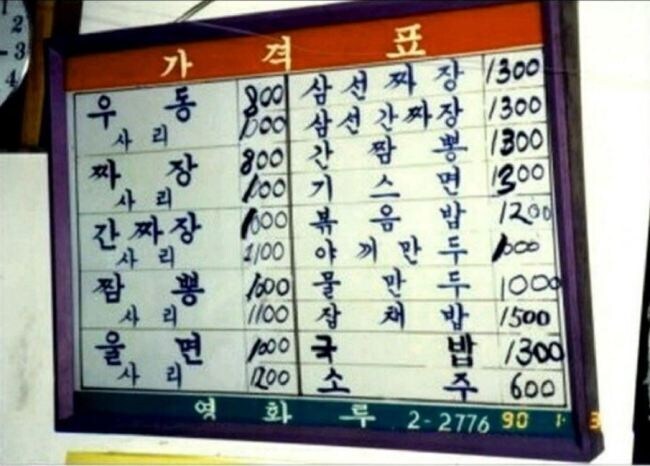 가격표
우동 800
사리 1000
짜장 800
사리 1000
간짜장 1000
사리 1100
짬뽕 1000
사리 1100
울면 1000
사리 1200
삼선짜장 1300
삼선간짜장 1300
간짬뽕 1300
기스면 1300
볶음밥 1200
야끼만두 1000
물만두 1000
잡채밥 1500
국밥 1300
소주 600
영화루 2-2776
90 1 3
1
2
3
4